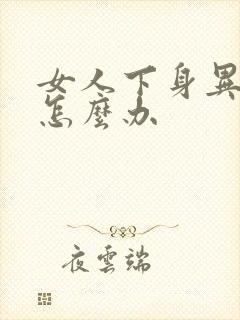 女人下身異
怎麼办
夜雲端